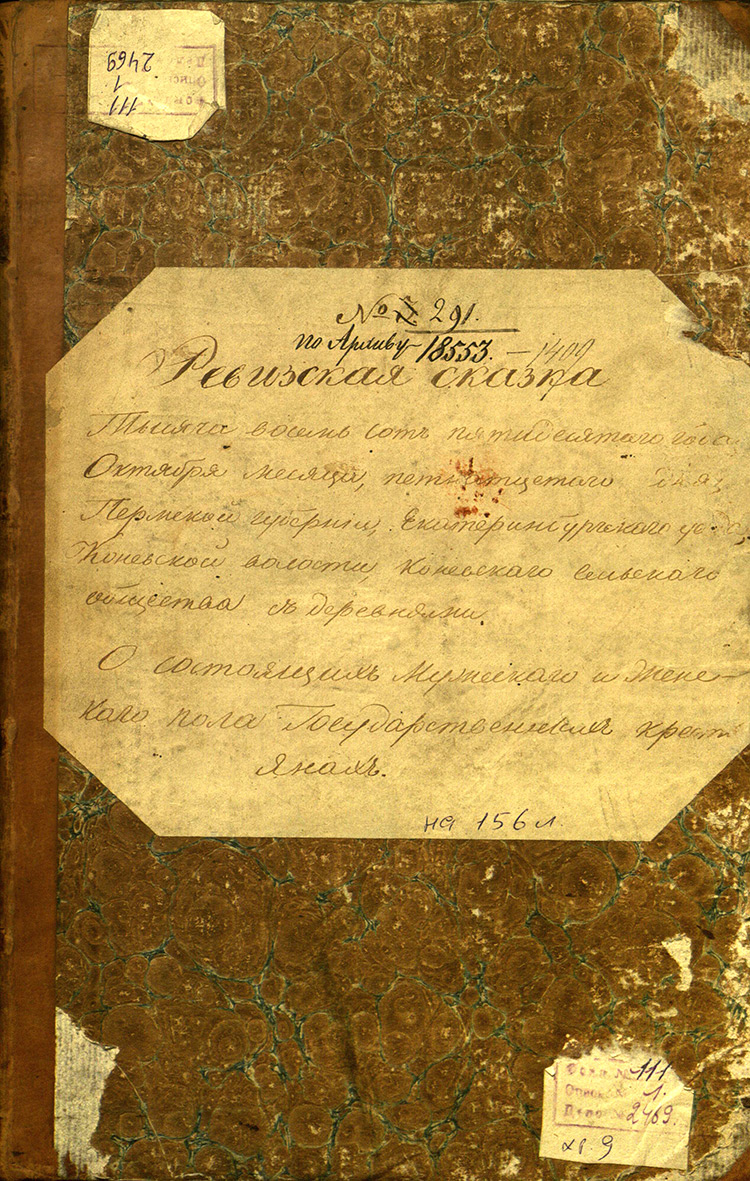 Фонд 111
Опись 1
Дело 2469
№ 291.
по Архиву 18553. – 1409
Ревизская сказка
Тысяча восемь сотъ пятидесятаго года,
Октября месяца, петнатцетого дня,
Пермской губернiи, Екатеринбургского уезда,
Коневской волости, Коневскаго сельскаго
общества съ деревнями.
О состоящихъ мужескаго и Женс-
каго пола Государственныхъ крест
янахъ.
на 156 л.
Фонд № 111
Опись № 1.
Дело № 2469.
хр. 9